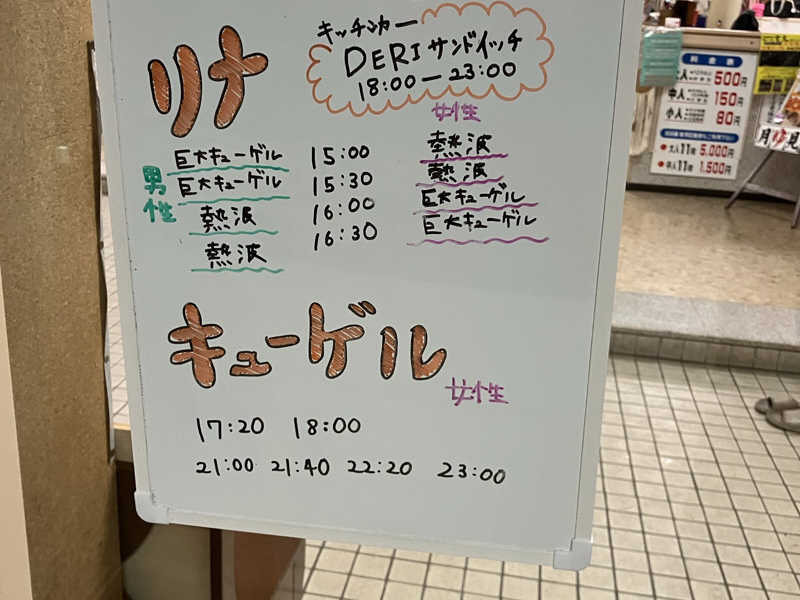 リナ
キッチンカー
DERIサンドイッチ
18:00ー23:00
男性
女性
巨大キューゲル 15:00 熱波
巨大キューゲル 15:30 熱波
熱波 16:00 巨大キューゲル
熱波 16:30 巨大キューゲル
キューゲル
女性
17:20 18:00
21:00 21:40 22:20 23:00
料金表
大人 500円
中人 150円
小人 80円
大人11枚 5,000円
中人11枚 1,500円